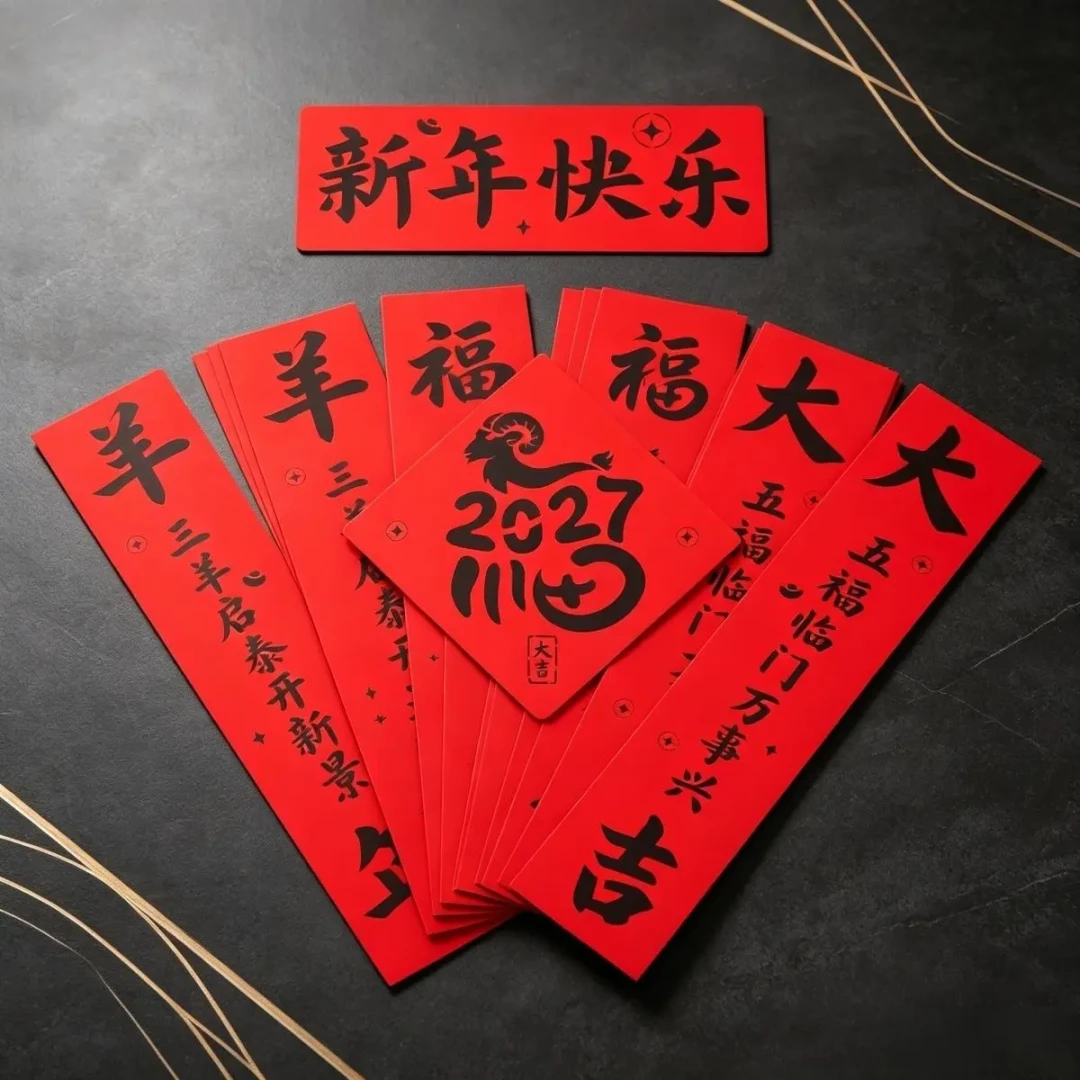 新年快乐
羊
三羊启泰开新景
羊
三
福
2027
福
大吉
福
大
五福临门
大
五福临门万事兴
吉